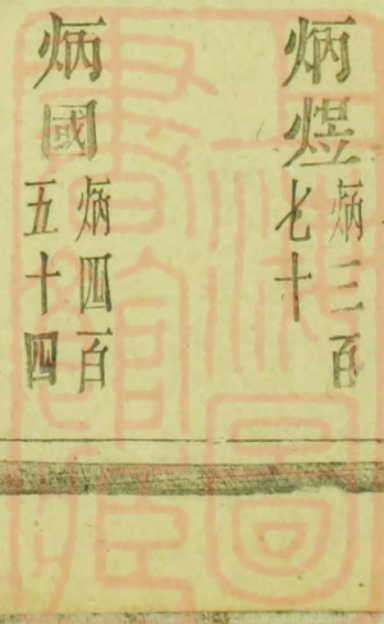 炳煜
炳三百
七十
炳國
炳四百
五十四